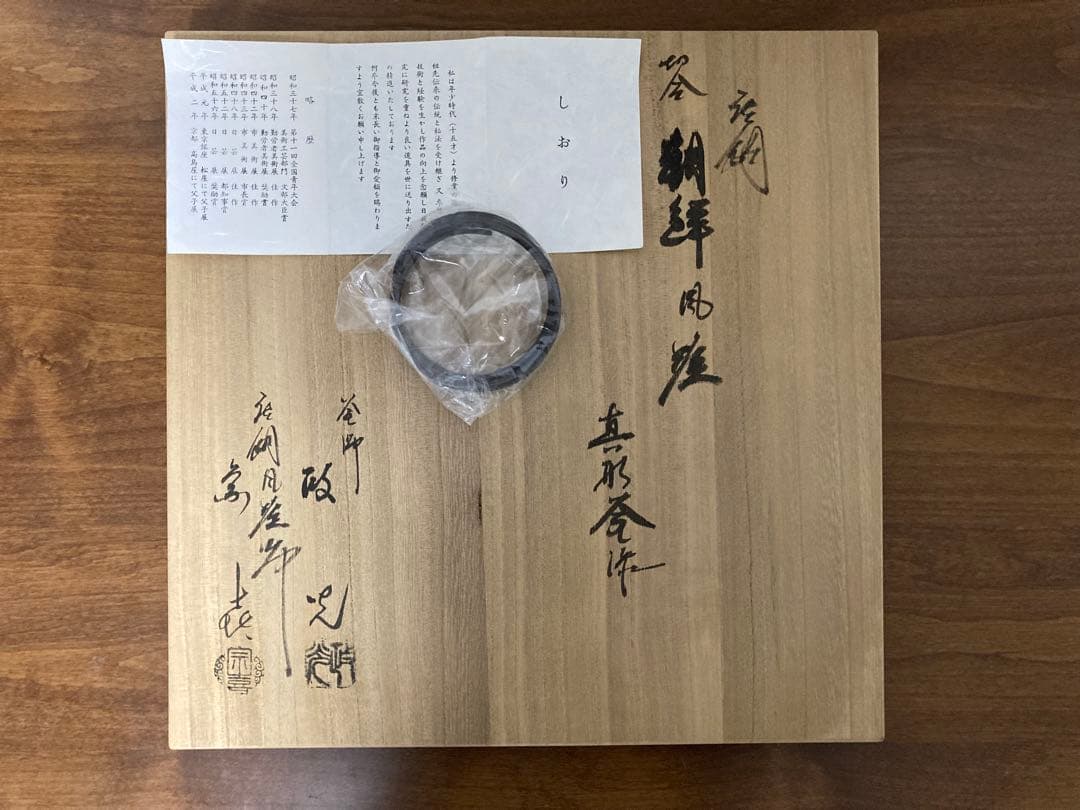 しおり
私は年少時代（十五才）より修業の
祖先伝来の伝統と秘法を受け継ぎ 又
技術と経験を生かし作品の向上を念願し日夜
究に研究を重ねより良い道具を世に送り出すた
め精進いたしております
何卒今後とも末長い御指導と御愛顧を賜わりま
すよう宜敷くお願い申し上げます
略歴
昭和三十七年 第十一回全国青年大会
美術工芸部門 文部大臣賞
昭和三十八年 勤労者美術展 佳作
昭和四十年 勤労者美術展 奨励賞
昭和四十二年 市美術展 佳作
昭和四十三年 市美術展 市長賞
昭和四十八年 日芸展 佳作
昭和五十二年 日芸展 都知事賞
昭和五十六年 日芸展 奨励賞
平成元年 東京銀座 松屋にて父子展
平成二年 京都 高島屋にて父子展
唐銅
朝鮮風炉
真形釜添
釜師 政光
唐銅風炉師
宗喜
宗喜